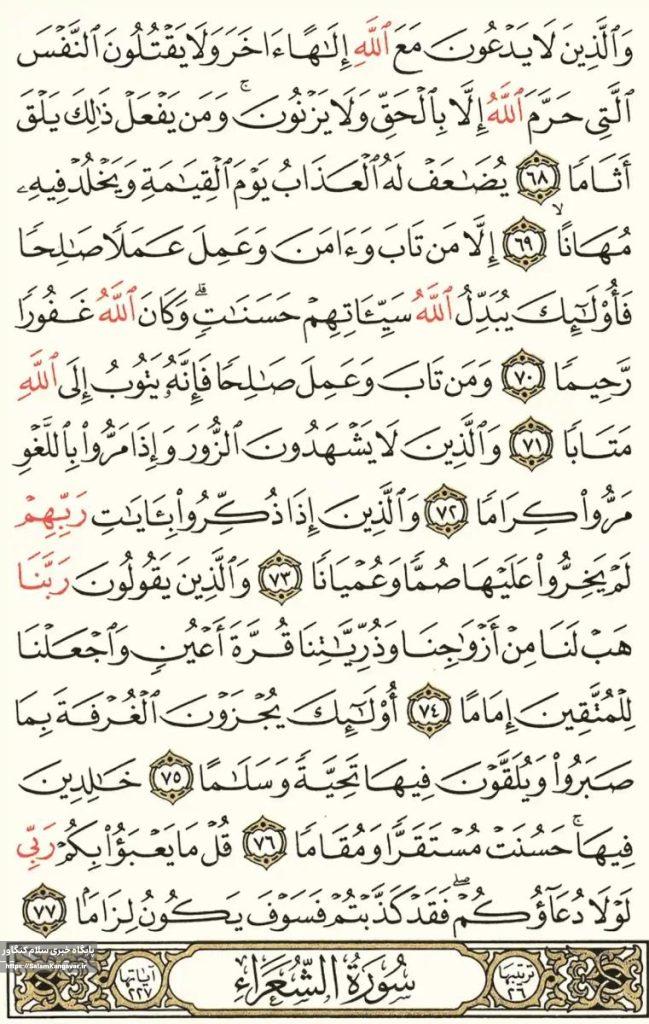 وَٱلَّذِينَ لَا يَدۡعُونَ مَعَ ٱللَّهِ إِلَٰهًا ءَاخَرَ وَلَا يَقۡتُلُونَ ٱلنَّفۡسَ
ٱلَّتِي حَرَّمَ ٱللَّهُ إِلَّا بِٱلۡحَقِّ وَلَا يَزۡنُونَۚ وَمَن يَفۡعَلۡ ذَٰلِكَ يَلۡقَ
أَثَامٗا ٦٨ يُضَٰعَفۡ لَهُ ٱلۡعَذَابُ يَوۡمَ ٱلۡقِيَٰمَةِ وَيَخۡلُدۡ فِيهِۦ
مُهَانًا ٦٩ إِلَّا مَن تَابَ وَءَامَنَ وَعَمِلَ عَمَلٗا صَٰلِحٗا
فَأُوْلَٰٓئِكَ يُبَدِّلُ ٱللَّهُ سَيِّـَٔاتِهِمۡ حَسَنَٰتٖۗ وَكَانَ ٱللَّهُ غَفُورٗا
رَّحِيمٗا ٧٠ وَمَن تَابَ وَعَمِلَ صَٰلِحٗا فَإِنَّهُۥ يَتُوبُ إِلَى ٱللَّهِ
مَتَابٗا ٧١ وَٱلَّذِينَ لَا يَشۡهَدُونَ ٱلزُّورَ وَإِذَا مَرُّواْ بِٱللَّغۡوِ
مَرُّواْ كِرَامٗا ٧٢ وَٱلَّذِينَ إِذَا ذُكِّرُواْ بِـَٔايَٰتِ رَبِّهِمۡ
لَمۡ يَخِرُّواْ عَلَيۡهَا صُمّٗا وَعُمۡيَانٗا ٧٣ وَٱلَّذِينَ يَقُولُونَ رَبَّنَا
هَبۡ لَنَا مِنۡ أَزۡوَٰجِنَا وَذُرِّيَّٰتِنَا قُرَّةَ أَعۡيُنٖ وَٱجۡعَلۡنَا
لِلۡمُتَّقِينَ إِمَامًا ٧٤ أُوْلَٰٓئِكَ يُجۡزَوۡنَ ٱلۡغُرۡفَةَ بِمَا
صَبَرُواْ وَيُلَقَّوۡنَ فِيهَا تَحِيَّةٗ وَسَلَٰمًا ٧٥ خَٰلِدِينَ
فِيهَاۚ حَسُنَتۡ مُسۡتَقَرّٗا وَمُقَامٗا ٧٦ قُلۡ مَا يَعۡبَؤُاْ بِكُمۡ رَبِّي
لَوۡلَا دُعَآؤُكُمۡۖ فَقَدۡ كَذَّبۡتُمۡ فَسَوۡفَ يَكُونُ لِزَامَۢا ٧٧
پایگاه خبری سلام کنگاور
https://SalamKangavar.ir
ترتيبها ٢٦ سُورَةُ الشُّعَرَاءِ آياتها ٢٢٧